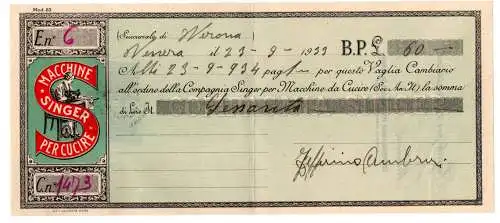 Mod. 63
E. n° 6
(Succursale di Verona
il 23-9-1933 B.P.£. 60
Alli 23-9-934 pag per questo Vaglia Cambiario
all'ordine della Compagnia Singer per Macchine da Cucire (Soc. An. It.) la somma
di Lire It. Sessanta
MACCHINE
SINGER
PER CUCIRE
C. n° 1473